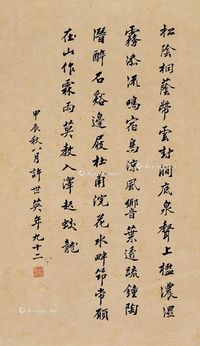 松陰桐蔭帶雲封澗底泉聲上檻濃濕
霧添流鳴宿鳥涼風響葉透疏鐘陶
潛醉石谿邊屐杜甫浣花水畔筇常願
在山作霖雨莫教入澤起蛟龍
甲辰秋八月許世英年九十二